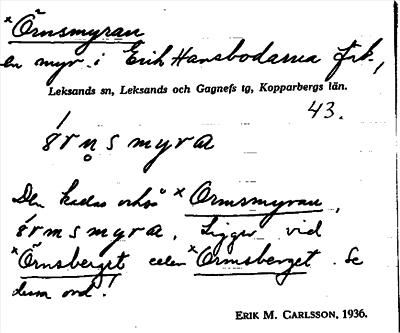 ×Örnsmyran
en myr i Erik Hansbodarna fbk.,
Leksands sn, Leksands och Gagnefs tg, Kopparbergs län.
43.
örn̥smyra
Den kallas också ×Ormsmyran,
örmsmyra. Ligger vid
×Örnsberget eller ×Ormsberget. Se
dessa ord!
ERIK M. CARLSSON, 1936.